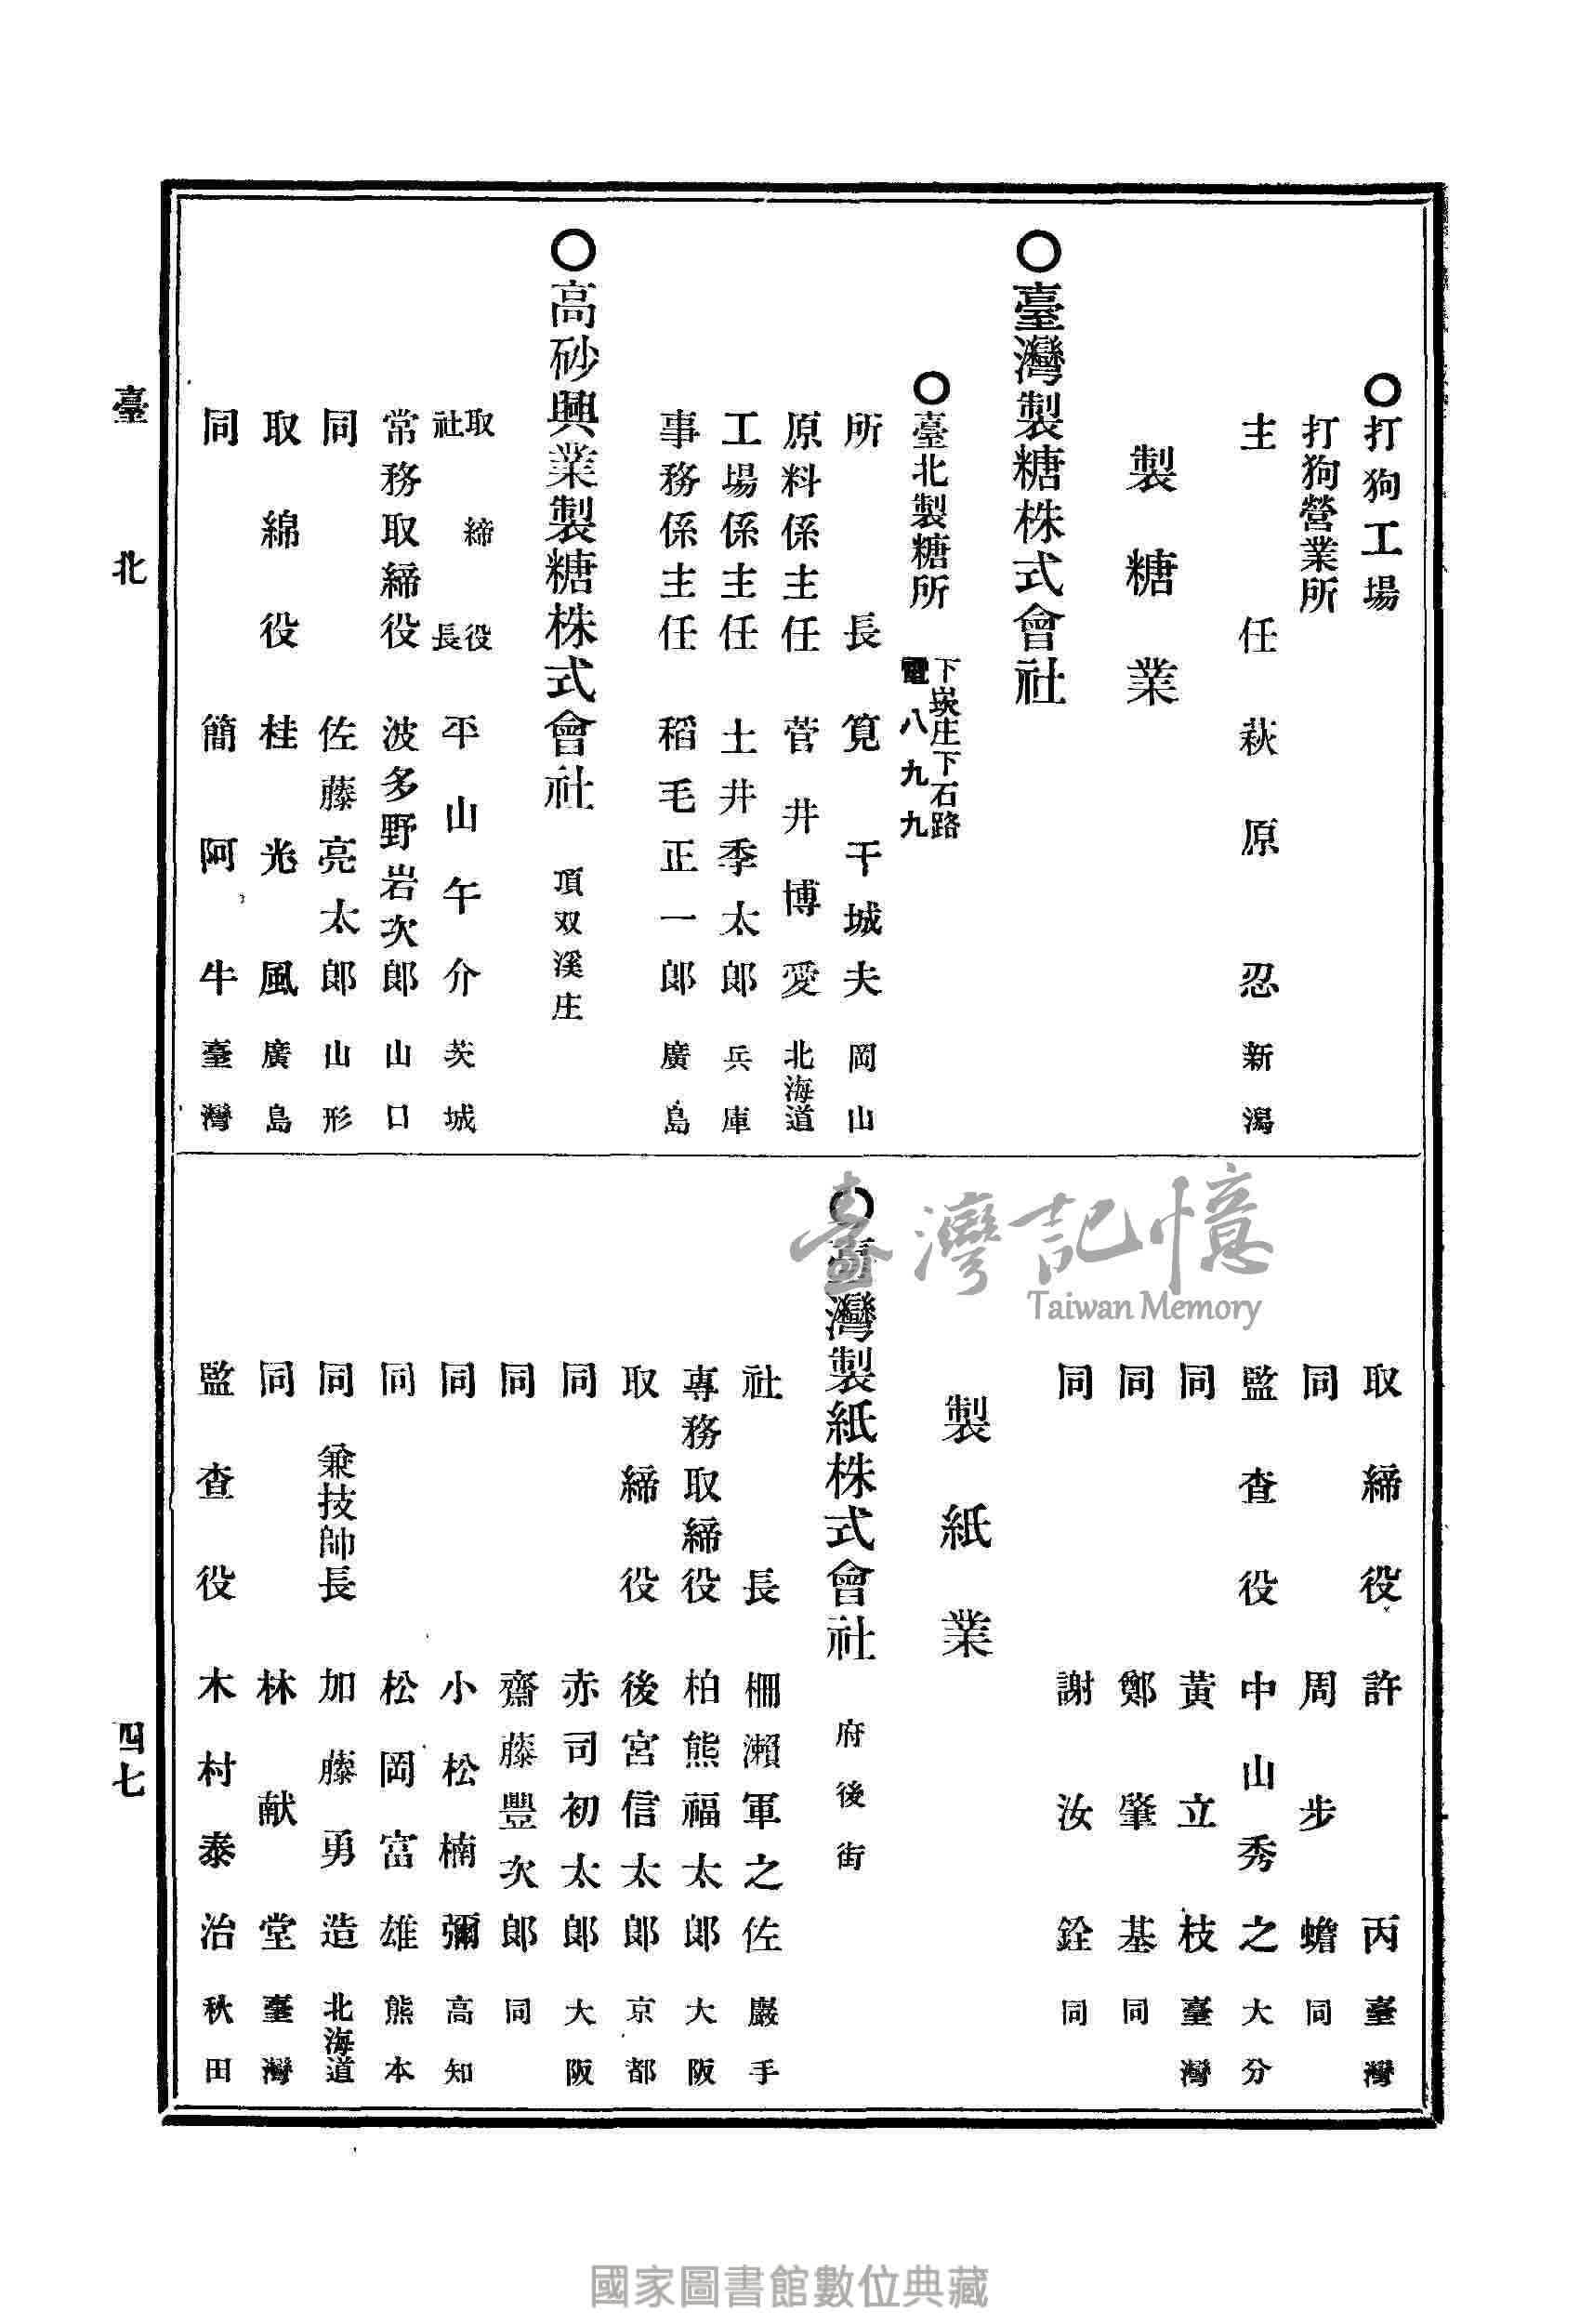 ○打狗工場
打狗營業所
主任 萩原忍 新潟
製糖業
○臺灣製糖株式會社
○臺北製糖所 下崁庄下石路 電八九九
所長 筧干城夫 岡山
原料係主任 菅井博愛 北海道
工場係主任 土井季太郎 兵庫
事務係主任 稻毛正一郎 廣島
○高砂興業製糖株式會社 頂双溪庄
取締役社長 平山午介 茨城
常務取締役 波多野岩次郎 山口
同 佐藤亮太郎 山形
取綿役 桂光風 廣島
同 簡阿牛 臺灣
取締役 許丙 臺灣
同 周步蟾 同
監査役 中山秀之 大分
同 黃立枝 臺灣
同 鄭肇基 同
同 謝汝銓 同
製紙業
○臺灣製紙株式會社 府後街
社長 柵瀨軍之佐 巖手
專務取締役 柏熊福太郎 大阪
取締役 後宮信太郎 京都
同 赤司初太郎 大阪
同 齋藤豐次郎 同
同 小松楠彌 高知
同 松岡富雄 熊本
同兼技師長 加藤勇造 北海道
同 林献堂 臺灣
監査役 木村泰治 秋田
臺北
四七
臺灣記憶
Taiwan Memory
國家圖書館數位典藏